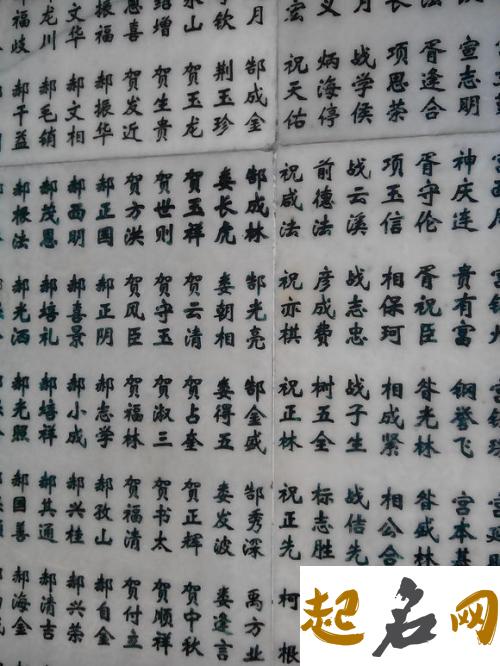 福岐
龙川
文华
振福
恩喜
绍增
永山
子钦
月
义
月
长
宣志明
郝干益
郝毛销
郝文相
郝振华
贺发近
贺生贵
贺玉龙
荆玉珍
郜成金
祝天佑
炳海停
战学侯
项思荣
胥逢合
郝根法
郝茂恩
郝西明
郝正国
贺方洪
贺世则
贺玉祥
娄长虎
郜成林
祝咸法
前德法
战云溪
项玉信
胥守伦
神庆连
郝光洒
郝培礼
郝喜景
郝正阴
贺风臣
贺守玉
贺云清
娄朝相
郜光亮
祝亦棋
彦成费
战志忠
相保珂
胥祝臣
贵有富
郝光照
郝培祥
郝小成
郝志学
贺福林
贺淑三
贺占奎
娄得五
郜金盛
祝正林
树五全
战子生
相成紧
昝光林
钢誉飞
郝国善
郝其通
郝兴桂
郝孜山
贺福清
贺书太
贺正辉
娄发波
郜秀深
祝正先
标志胜
战佶先
相公合
昝盛林
宫本基
郝海金
郝清吉
郝兴荣
郝自金
贺付立
贺顺祥
贺中秋
娄逢言
禹方业
柯根
起名网